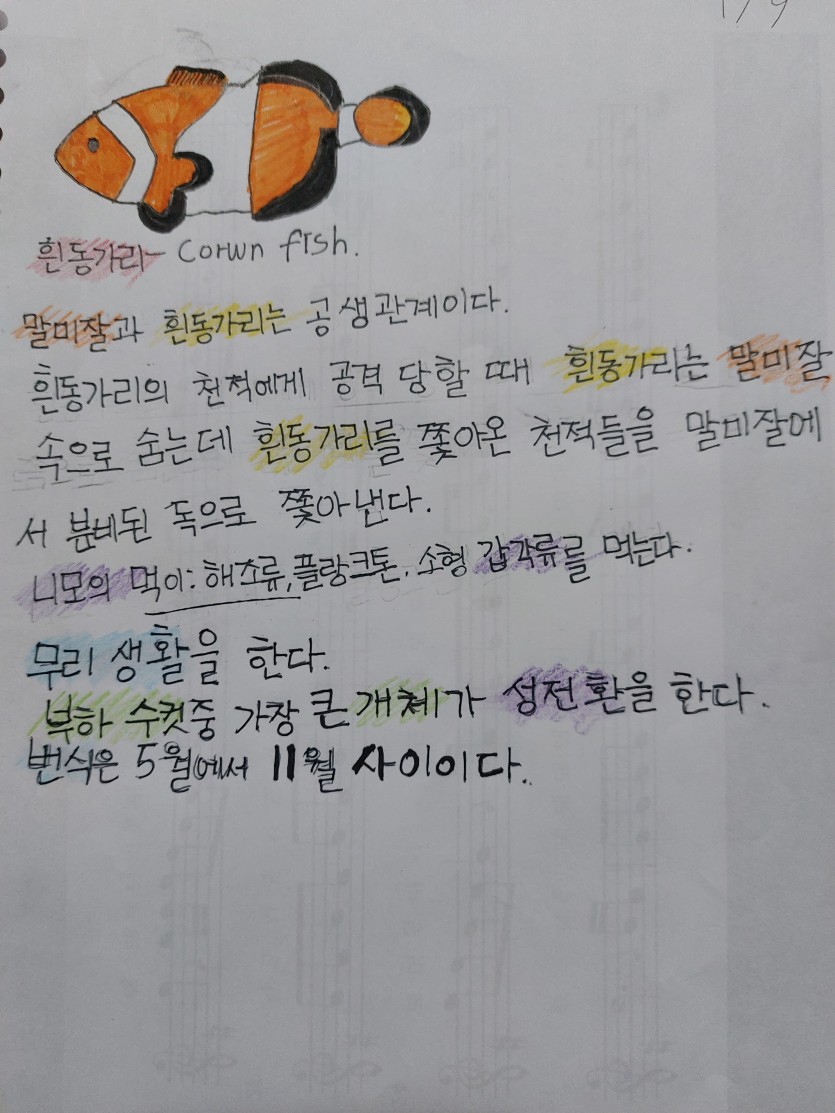 1/9
흰동가리- Corwn fish.
말미잘과 흰동가리는 공생관계이다.
흰동가리의 천적에게 공격 당할 때 흰동가리는 말미잘
속으로 숨는데 흰동가리를 쫓아온 천적들을 말미잘에
서 분비된 독으로 쫓아낸다.
니모의 먹이: 해조류, 플랑크톤, 소형 갑각류를 먹는다.
무리 생활을 한다.
부하 수컷중 가장 큰 개체가 성전환을 한다.
번식은 5월에서 11월 사이이다.